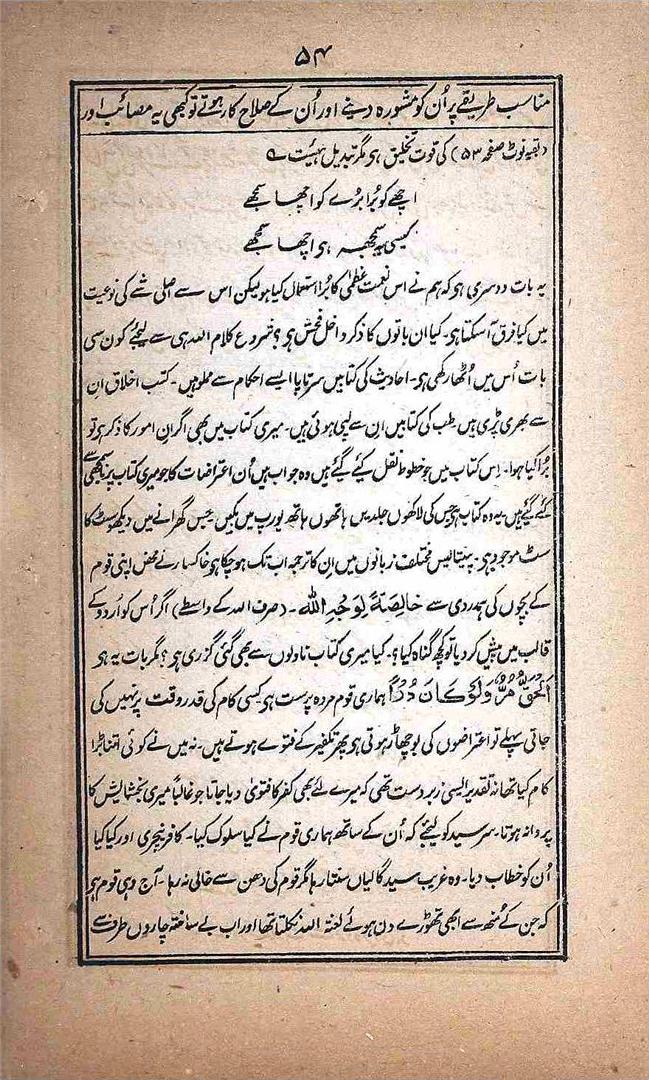 ۵۴
مناسب طریقے پر اُن کو مشورہ دیتے اور اُن کے صلاح کار ہوتے تو کبھی یہ مصائب اور
(بقیہ نوٹ صفحہ ۵۳) کی قوت تخلیق ہو مگر تبدیل ہئیت سے
اچھے کو بُرا بُرے کو اچھا سمجھے
کیسی یہ سمجھ ہو اچھا سمجھے
یہ بات دوسری ہو کہ ہم نے اس نعمت عظمٰی کا بُرا استعمال کیا ہو لیکن اس سے اصلی شے کی نوعیت
میں کیا فرق آ سکتا ہو۔ کیا ان باتوں کا ذکر داخل فحش ہو؟ شروع کلام اللہ ہی سے لیجئے کون سی
بات اُس میں اُٹھا رکھی ہو۔ احادیث کی کتابیں سرتاپا ایسے احکام سے مملو ہیں۔ کتب اخلاق ان
سے بھری پڑی ہیں طب کی کتابیں ان سے لبی ہوئی ہیں۔ میری کتاب میں بھی اگر ان امور کا ذکر ہو تو
بُرا کیا ہوا۔ اِس کتاب میں جو خطوط نقل کیے گیے ہیں وہ جواب ہیں اُن اعتراضات کا جو میری کتاب پر ناسمجھی سے
کیے گیے ہیں۔ یہ وہ کتاب ہو جس کی لاکھوں جلدیں ہاتھوں ہاتھ یورپ میں بکیں۔ جس گھرانے میں دیکھو سٹ کا
سٹ موجود ہو۔ پینتالیس مختلف زبانوں میں ان کا ترجمہ اب تک ہو چکا ہو خاکسار نے محض اپنی قوم
کے بچوں کی ہمدردی سے خَالِصَۃً لِوَجْہِ اللّٰہ۔ (صرف اللہ کے واسطے) اگر اُس کو اُردو کے
قالب میں پیش کر دیا تو کچھ گناہ کیا؟۔ کیا میری کتاب ناولوں سے بھی گئی گزری ہو؟ مگر بات یہ ہو
اَلحَقُّ مُرٌّ وَلَوْ کَانَ دُرًّا ہماری قوم مردہ پرست ہو۔ کسی کام کی قدر وقت پر نہیں کی
جاتی پہلے تو اعتراضوں کی بوچھاڑ ہوتی ہو پھر تکفیر کے فتوے ہوتے ہیں۔ نہ میں نے کوئی اتنا بڑا
کام کیا تھا نہ تقدیر ایسی زبردست تھی کہ میرے لئے بھی کفر کا فتویٰ دیا جاتا جو غالباً میری بخشایش کا
پروانہ ہوتا۔ سرسید کو لیجئے کہ اُن کے ساتھ ہماری قوم نے کیا سلوک کیا۔ کافر نیچری اور کیا کیا
اُن کو خطاب دیا۔ وہ غریب سید گالیاں سنتا رہا مگر قوم کی دھن سے خالی نہ رہا۔ آج وہی قوم ہو
کہ جن کے مُنھ سے ابھی تھوڑے دن ہوئے لعنۃ اللہ نکلتا تھا اور اب بے ساختہ چاروں طرف سے